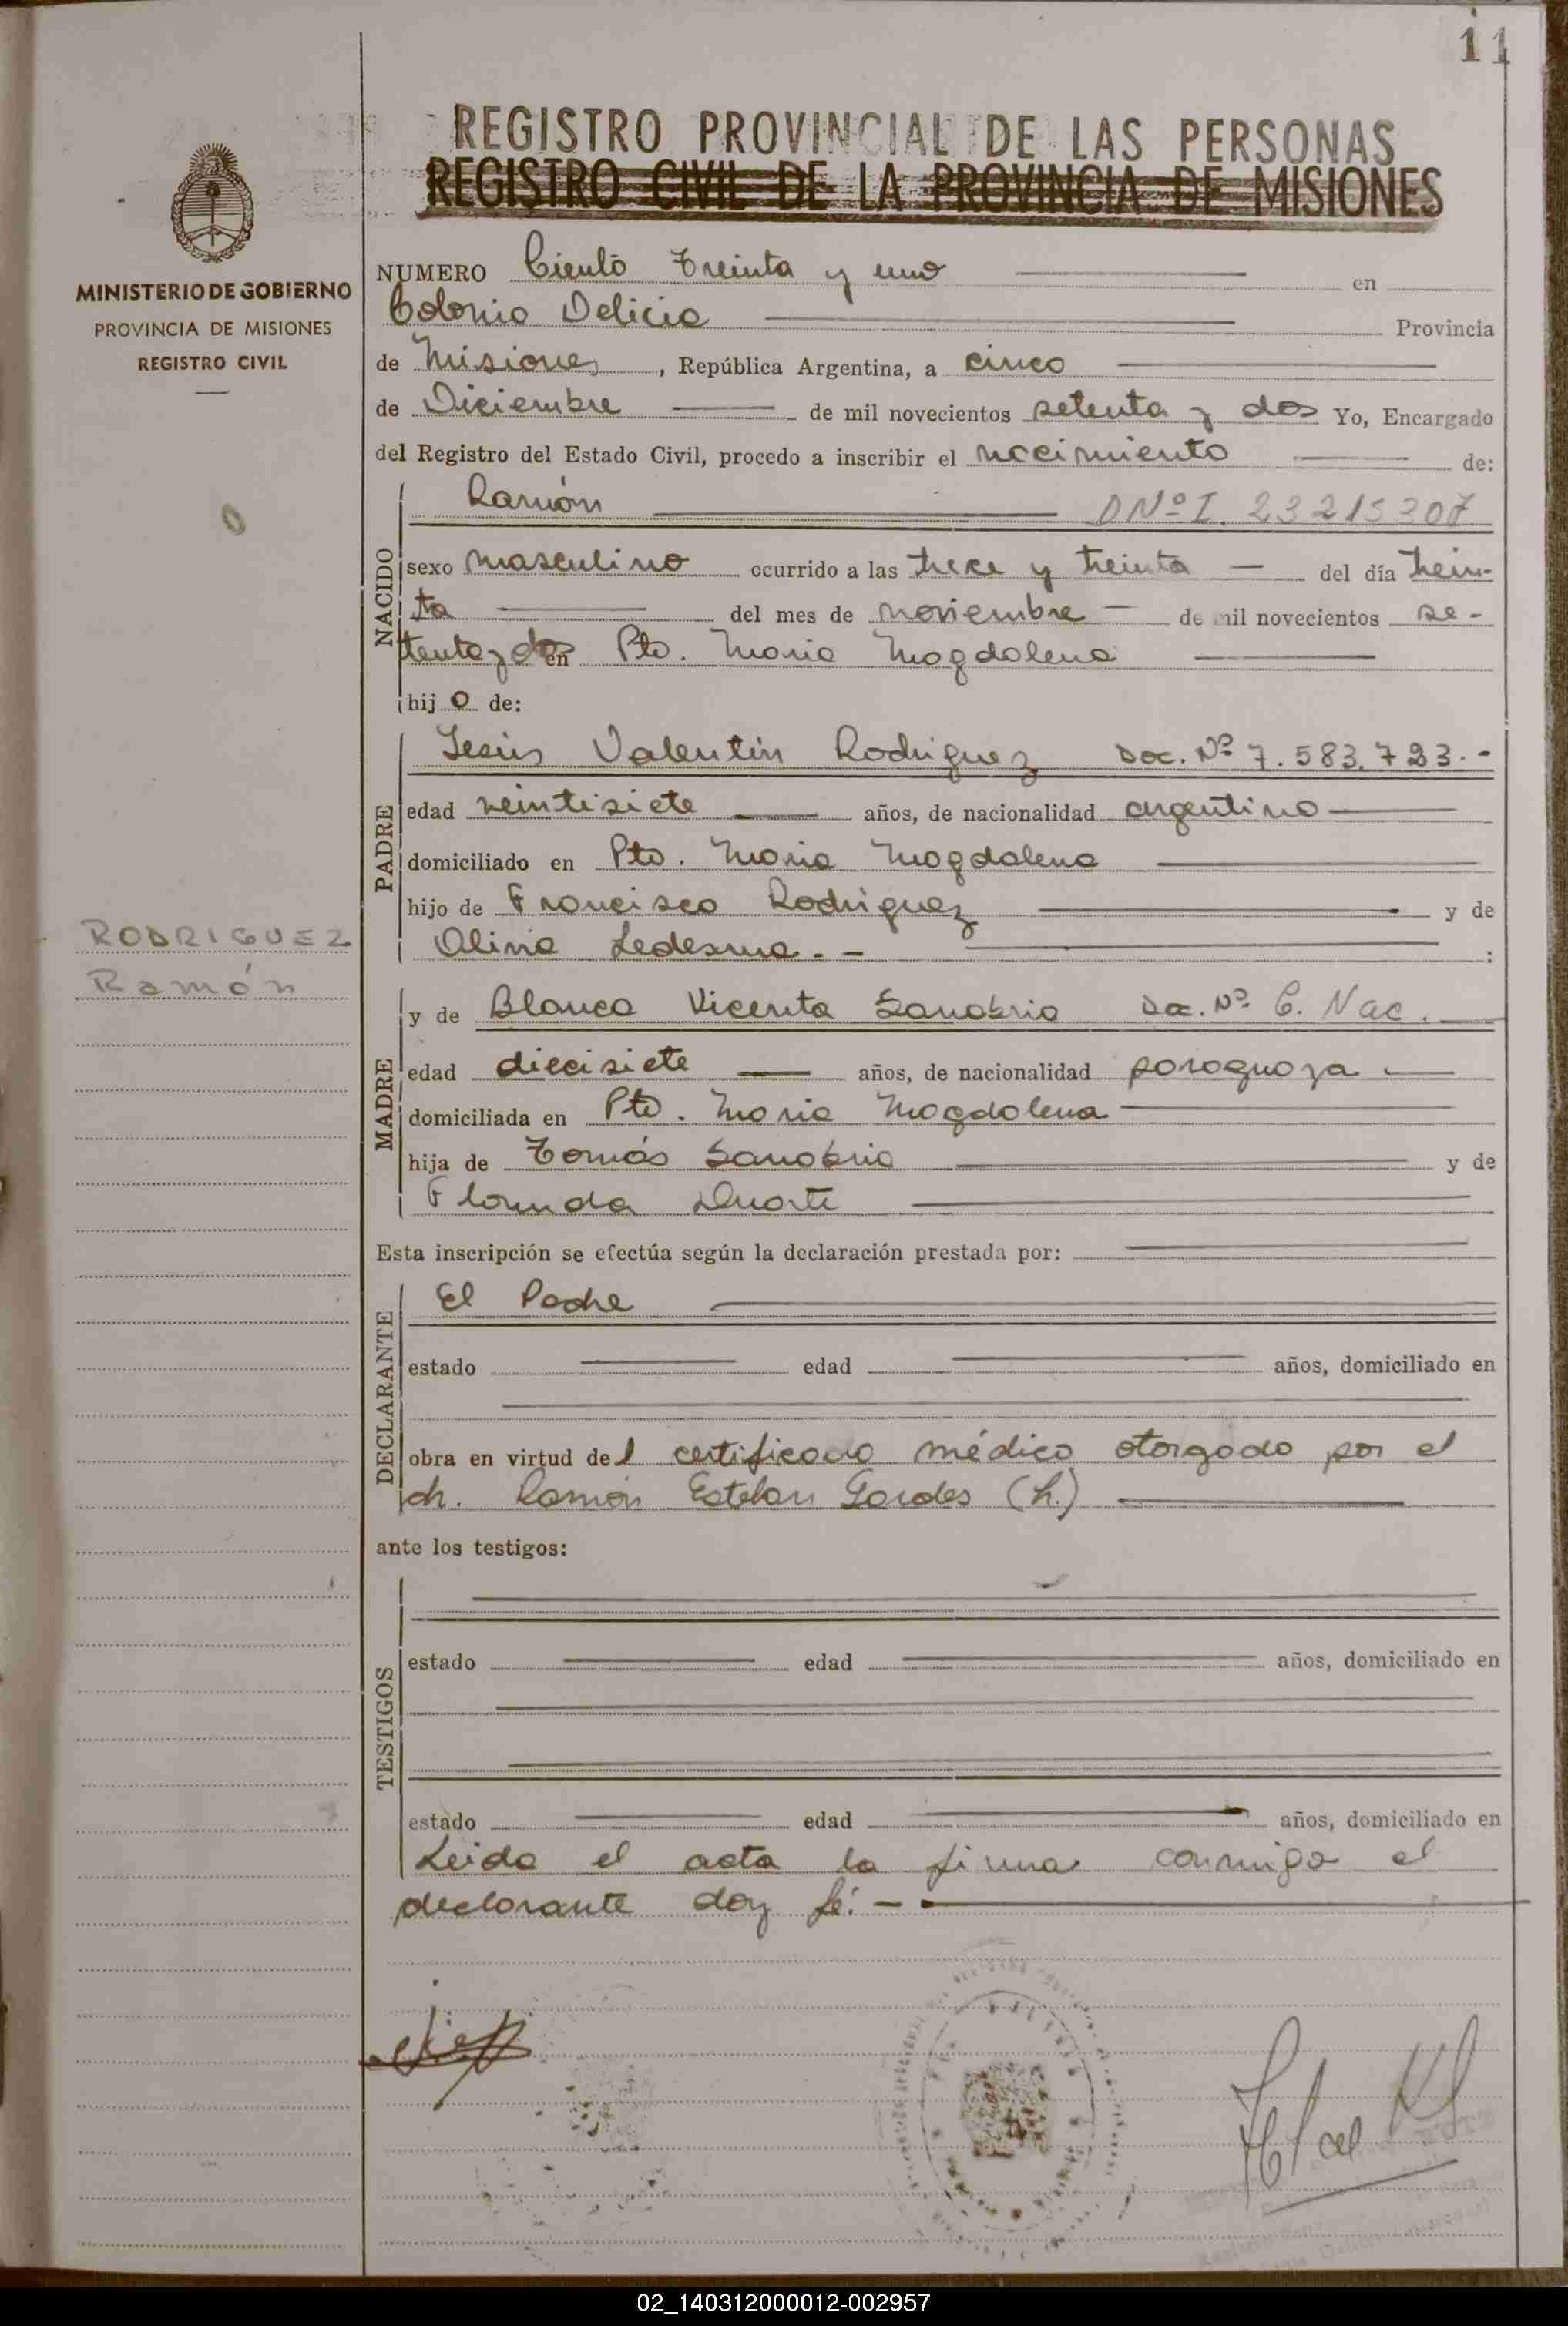 11
REGISTRO PROVINCIAL DE LAS PERSONAS
REGISTRO CIVIL DE LA PROVINCIA DE MISIONES
MINISTERIO DE GOBIERNO
PROVINCIA DE MISIONES
REGISTRO CIVIL
NUMERO Ciento Treinta y uno en
Colonia Delicia Provincia
de Misiones, República Argentina, a cinco
de Diciembre de mil novecientos setenta y dos Yo, Encargado
del Registro del Estado Civil, procedo a inscribir el nacimiento de:
NACIDO
Ramón DNºI. 23215307
sexo masculino ocurrido a las trece y treinta del día trein-
ta del mes de noviembre de mil novecientos se-
tenta y dos en Pto. Maria Magdalena
hijo de:
PADRE
Jesús Valentín Rodriguez Doc. Nº 7.583.723.-
edad veintisiete años, de nacionalidad argentino
domiciliado en Pto. Maria Magdalena
hijo de Francisco Rodriguez y de
Olivia Ledesma. - :
RODRIGUEZ
Ramón
MADRE
y de Blanca Vicenta Sanabria Doc. Nº C. Nac.
edad diecisiete años, de nacionalidad paraguaya
domiciliada en Pto. Maria Magdalena
hija de Tomás Sanabria y de
Florinda Duarte
Esta inscripción se efectúa según la declaración prestada por:
DECLARANTE
El Padre
estado edad años, domiciliado en
obra en virtud del certificado médico otorgado por el
dr. Ramón Esteban Gardes (h.)
ante los testigos:
TESTIGOS
estado edad años, domiciliado en
estado edad años, domiciliado en
Leida el acta la firma conmigo el
declarante doy fé. -
02_140312000012-002957